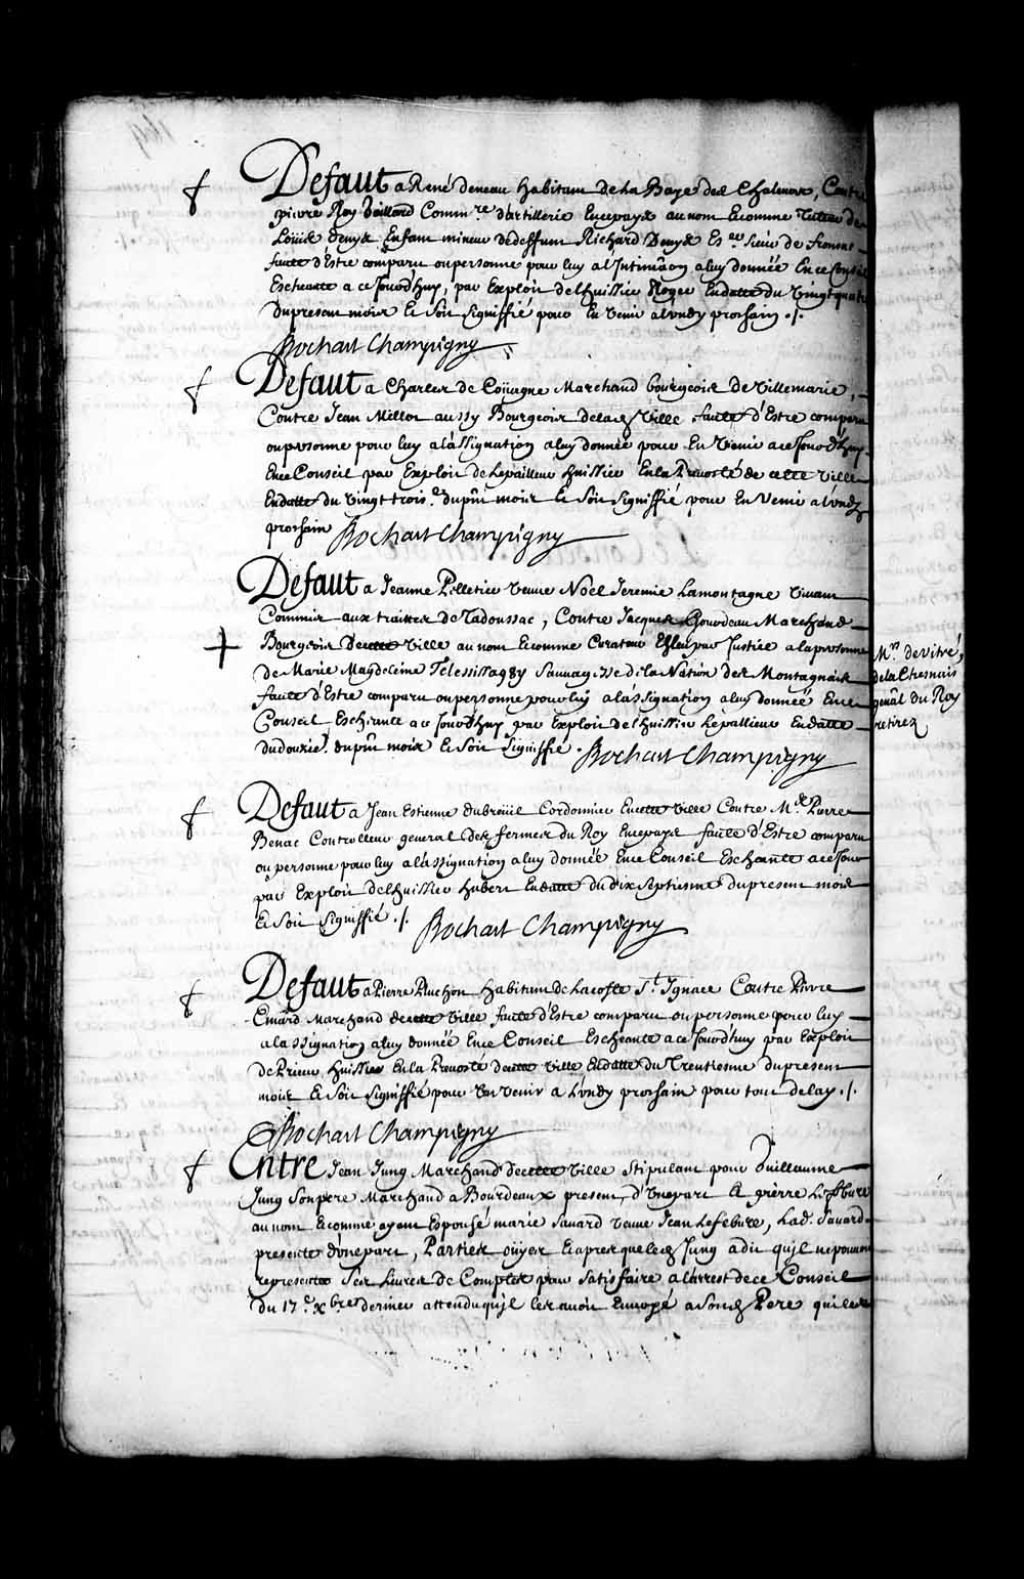 Defaut a René Deneau habitant de la Baye des Chaleurs, Contre
pierre Rey Gaillard Comm.re d'artillerie En ce pays au nom Et comme Tuteur de
Louis denys Enfant mineur de deffunt Richard Denys Es.er sieur de fronsac
faute d'Estre comparu ou personne pour luy a l'Intimaõn a luy donnée En ce Conseil
Escheante a ce Jourd'huy, par Exploit de l'huissier Roger En datte du vingt quatre
du present mois Et soit signiffié pour En venir a lundy prochain ./.
Bochart Champigny
Defaut a Charles de Coüagne Marchand bourgeois de Villemarie,
Contre Jean Millot aussy Bourgeois de lad. Ville faute d'Estre comparu
ou personne pour luy a l'assignation a luy donnée pour En Venir a ce Jourd'huy
En ce Conseil par Exploit de Lepailleur huissier En la Prevosté de cette Ville
En datte du vingt trois.e du pñt mois Et soit signiffié pour En Venir a lundy
prochain Bochart Champigny
Defaut a Jeanne Pelletier veuve Noël Jeremie Lamontagne vivant
Commis aux traittes de Tadoussac, Contre Jacques Gourdeau Marchand
Bourgeois de cette Ville au nom Et comme Curateur Esleu par Justice a la personne
de Marie Magdeleine Sauvagesse de la Nation des Montagnais
faute d'Estre comparu ou personne pour luy a l'assignation a luy donnée En ce
Conseil Escheante a ce Jourd'huy par Exploit de l'huissier Lepallieur En datte
du douzie. du pñt mois Et soit signiffié. Bochart Champigny
M.rs de Vitré,
de la Chesnais
genâl du Roy
retirez
Defaut a Jean Estienne dubreüil Cordonnier En cette Ville Contre M.e Pierre
Benac Controlleur general des fermes du Roy En ce pays faute d'Estre comparu
ou personne pour luy a l'assignation a luy donnée En ce Conseil Escheante a ce Jour
par Exploit de l'huissier hubert En datte du dix septiesme du present mois
Et soit signiffié ./. Bochart Champigny
Defaut a Pierre Pluchon habitant de la coste S.t Ignace Contre Pierre
Emard Marchand de cette Ville faute d'Estre comparu ou personne pour luy
a l'assignation a luy donnée En ce Conseil Escheante a ce Jourd'huy par Exploit
de Prieur huissier En la Prevosté de cette Ville En datte du Trentiesme du present
mois Et soit signiffié pour En venir a Lundy prochain pour tout delay ./.
Bochart Champigny
Entre Jean Jung Marchand de cette Ville stipulant pour Guillaume
Jung son pere Marchand a Bourdeaux present, d'une part Et pierre Lefebure
au nom Et comme ayant Espousé marie Savard veuve Jean Lefebure, Lad. Savard
presente d'une part, Parties oüyes Et apres que led. Jung a dit qu'il ne pouvoit
representer ses Livres de Comptes pour satisfaire a l'arrest de ce Conseil
du 17.e x.bre dernier attendu qu'il les avoit Envoyé a Sond. Pere qui